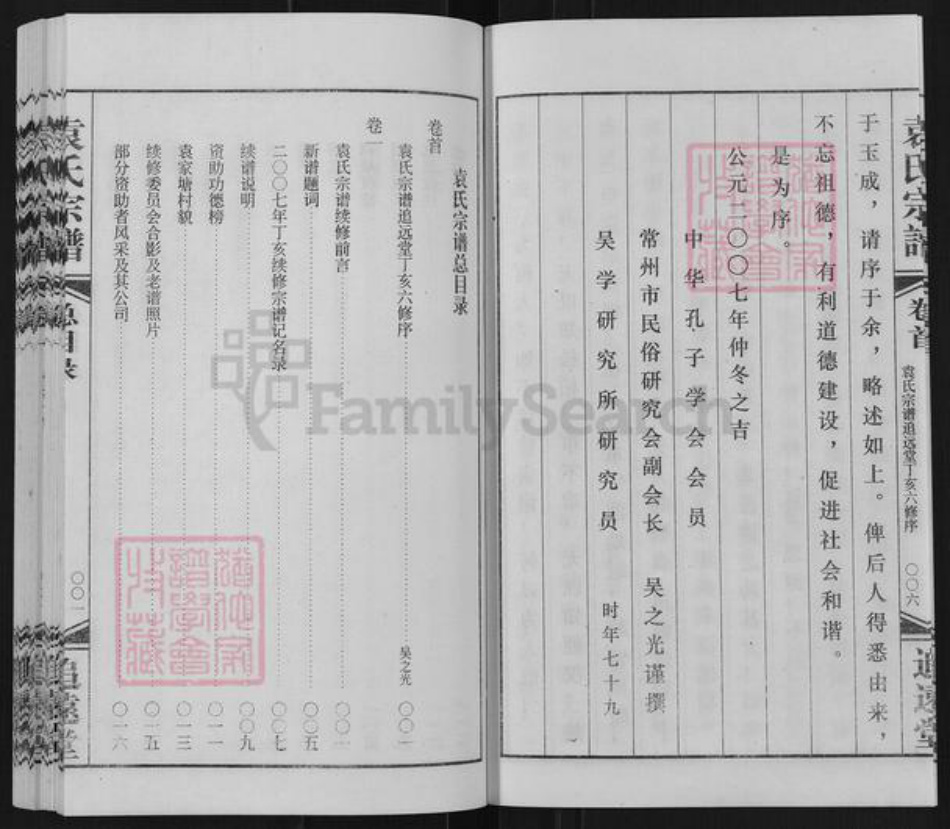 袁氏宗譜
卷首
袁氏宗谱追远堂丁亥六修序
〇〇六
追遠堂
于玉成，请序于余，略述如上。俾后人得悉由来，
不忘祖德，有利道德建设，促进社会和谐。
是为序。
公元二〇〇七年仲冬之吉
中华孔子学会会员
常州市民俗研究会副会长 吴之光谨撰
吴学研究所研究员 时年七十九
袁氏宗谱总目录
卷首
袁氏宗谱追远堂丁亥六修序 吴之光 〇〇一
袁氏宗谱续修前言 〇〇二
新谱题词 〇〇五
二〇〇七年丁亥续修宗谱记名录 〇〇七
续谱说明 〇〇九
资助功德榜 〇一一
卷一
袁家塘村貌 〇一三
续修委员会合影及老谱照片 〇一五
部分资助者风采及其公司 〇一六
袁氏宗譜
总目录
〇〇一
追遠堂
FamilySearch